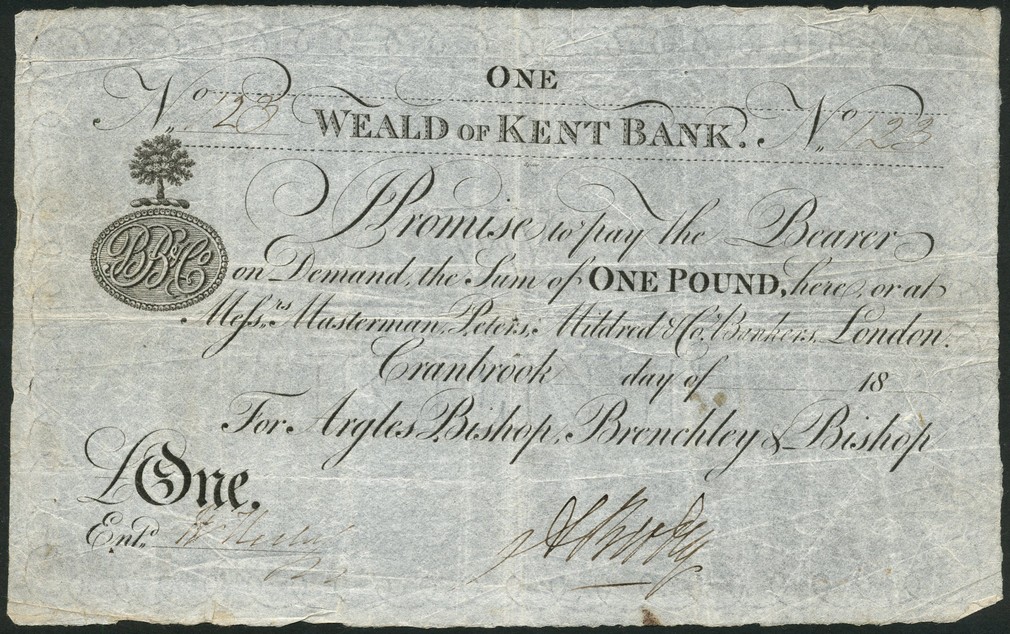 ONE
No. 123 WEALD OF KENT BANK. No. 123
BB&Co
I Promise to pay the Bearer
on Demand, the Sum of ONE POUND, here, or at
Messrs. Masterman, Peters, Mildred & Co. Bankers, London.
Cranbrook day of 18
For Argles Bishop, Brenchley & Bishop
£One.
Entd.